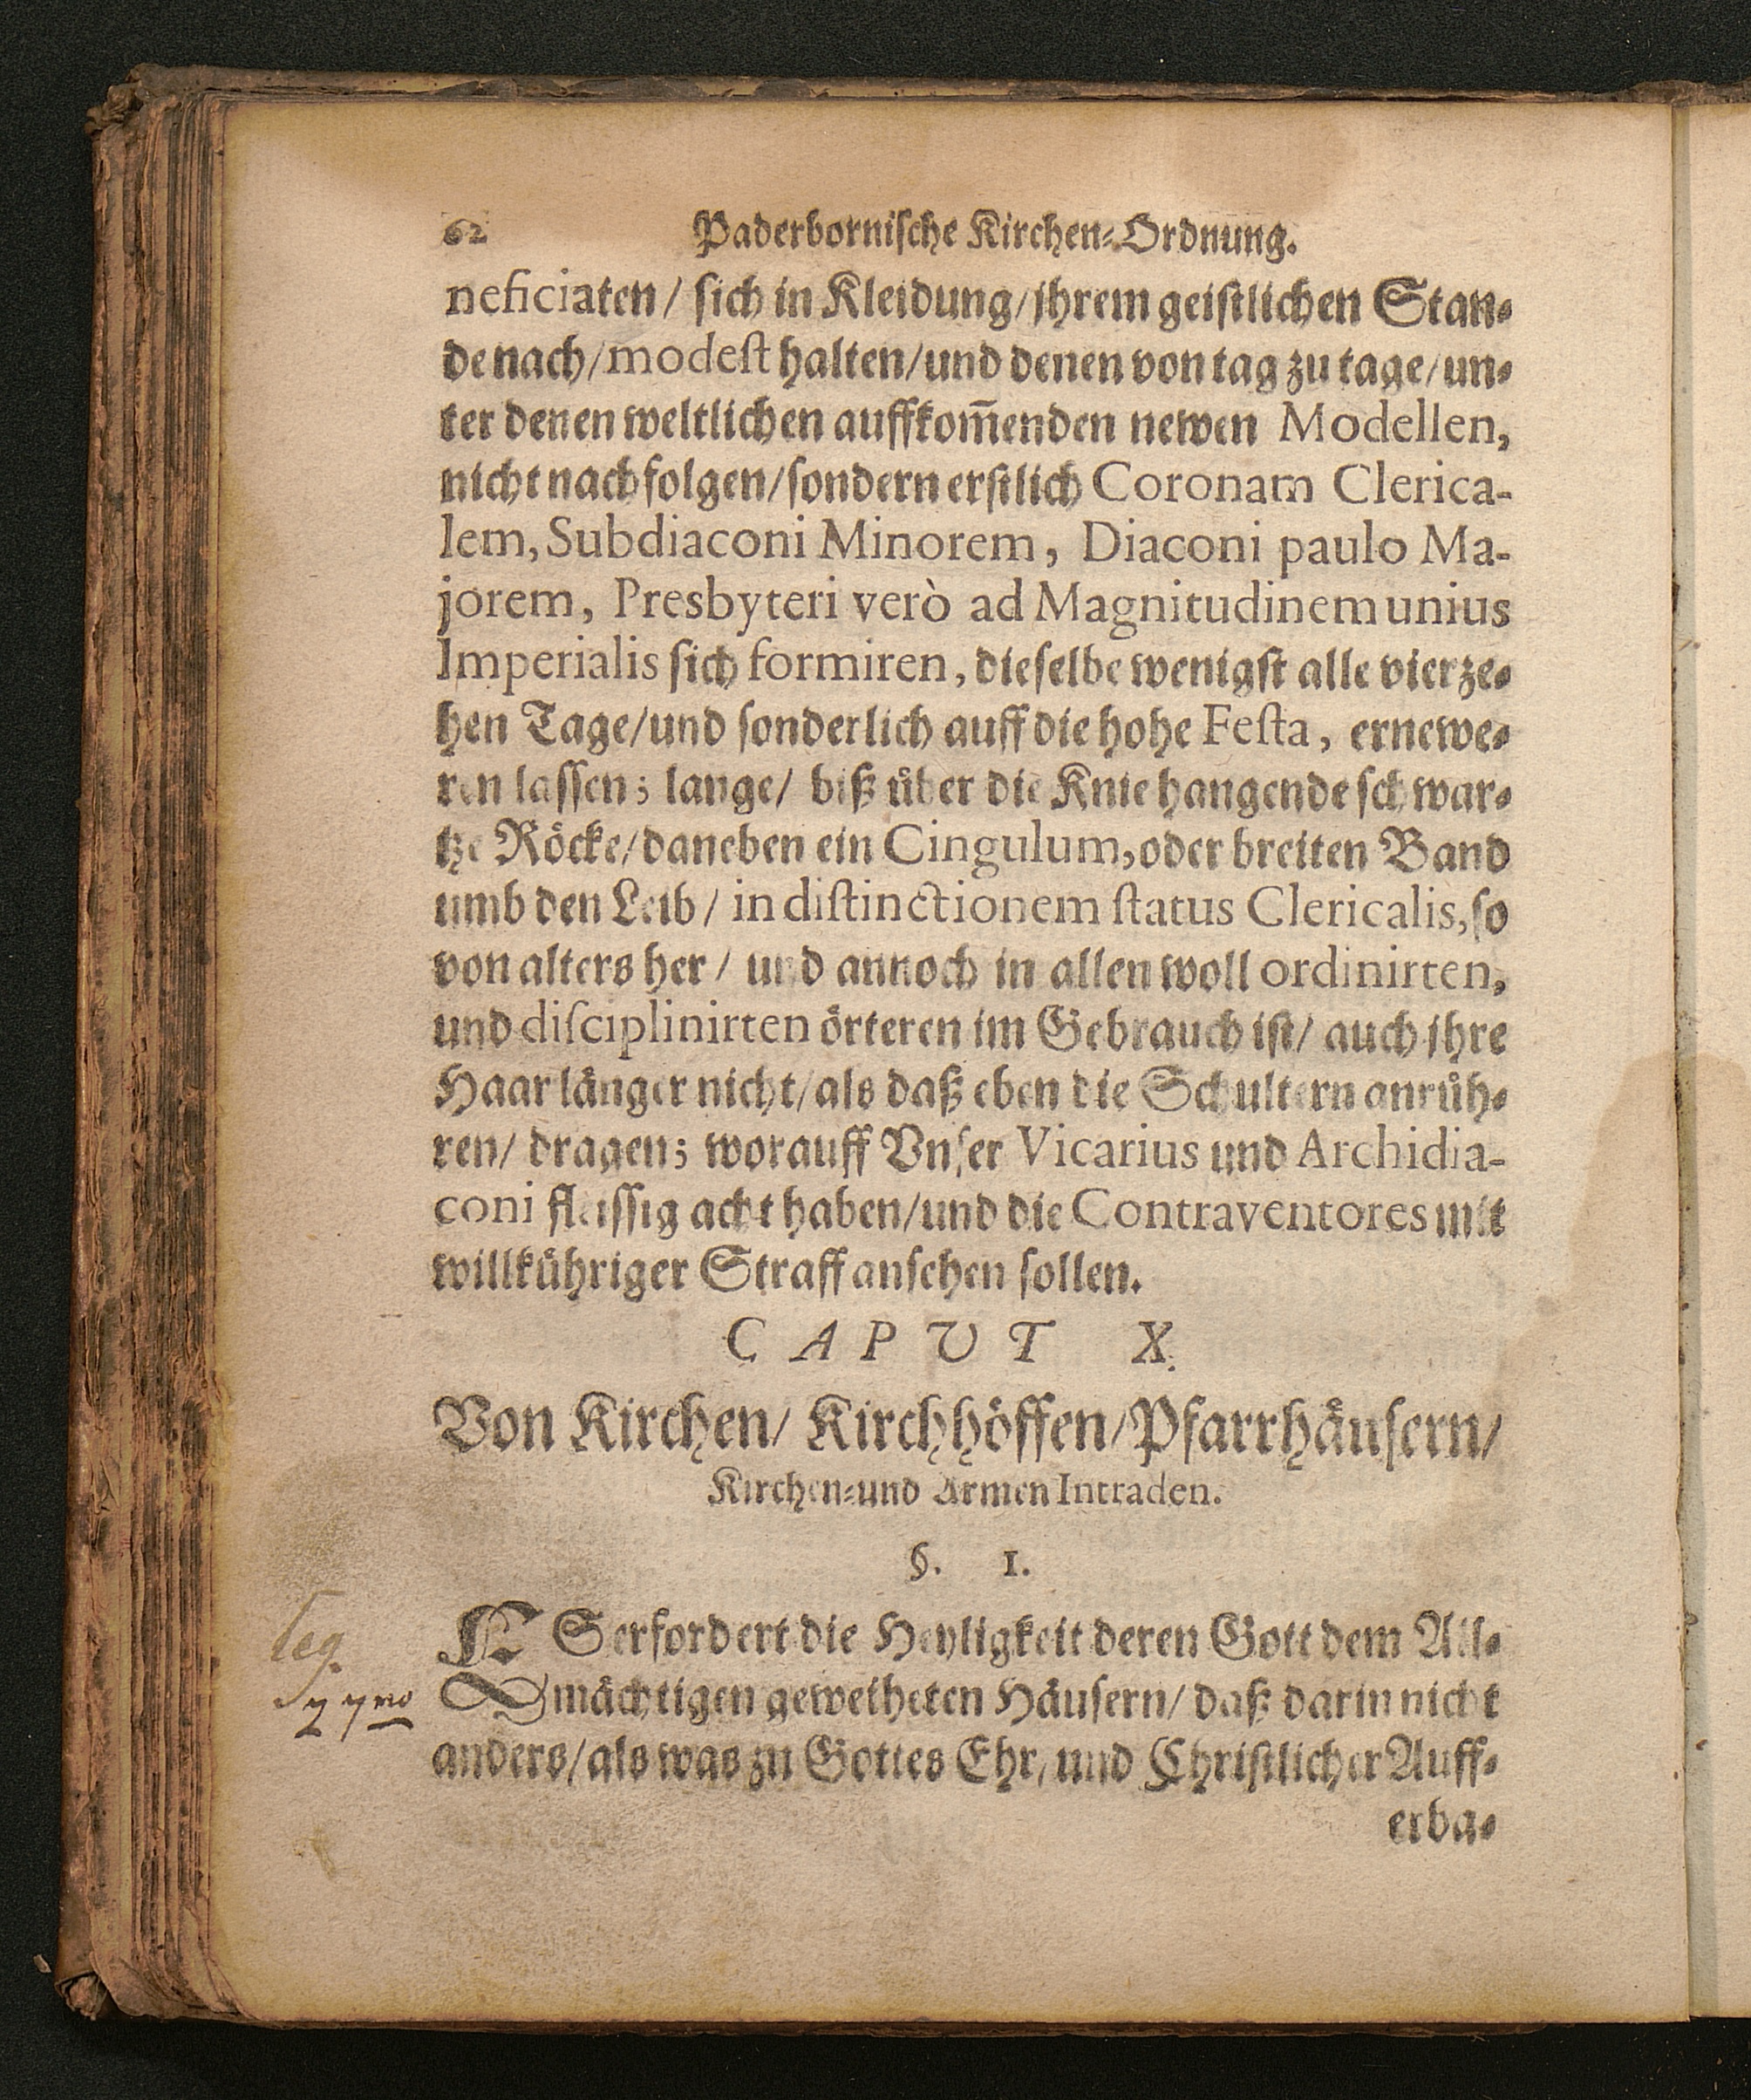 62 Paderbornische Kirchen-Ordnung.
neficiaten/ sich in Kleidung/ jhrem geistlichen Stan-
de nach/ modest halten/ und denen von tag zu tage/ un-
ter denen weltlichen auffkom̄enden newen Modellen,
nicht nachfolgen/ sondern erstlich Coronam Clerica-
lem, Subdiaconi Minorem, Diaconi paulo Ma-
jorem, Presbyteri verò ad Magnitudinem unius
Imperialis sich formiren, dieselbe wenigst alle vierze-
hen Tage/ und sonderlich auff die hohe Festa, ernewe-
ren lassen; lange/ biß über die Knie hangende schwar-
tze Röcke/ daneben ein Cingulum, oder breiten Band
umb den Leib/ in distinctionem status Clericalis, so
von alters her/ und annoch in allen woll ordinirten,
und disciplinirten örteren im Gebrauch ist/ auch jhre
Haar länger nicht/ als daß eben die Schultern anrüh-
ren/ dragen; worauff Vnser Vicarius und Archidia-
coni fleissig acht haben/ und die Contraventores mit
willkühriger Straff ansehen sollen.
CAPUT X.
Von Kirchen/ Kirchhöffen/ Pfarrhäusern/
Kirchen- und Armen Intraden.
§. 1.
ES erfordert die Heyligkeit deren Gott dem All-
mächtigen geweiheten Häusern/ daß darin nicht
anders/ als was zu Gottes Ehr, und Christlicher Auff-
erba-
leg.